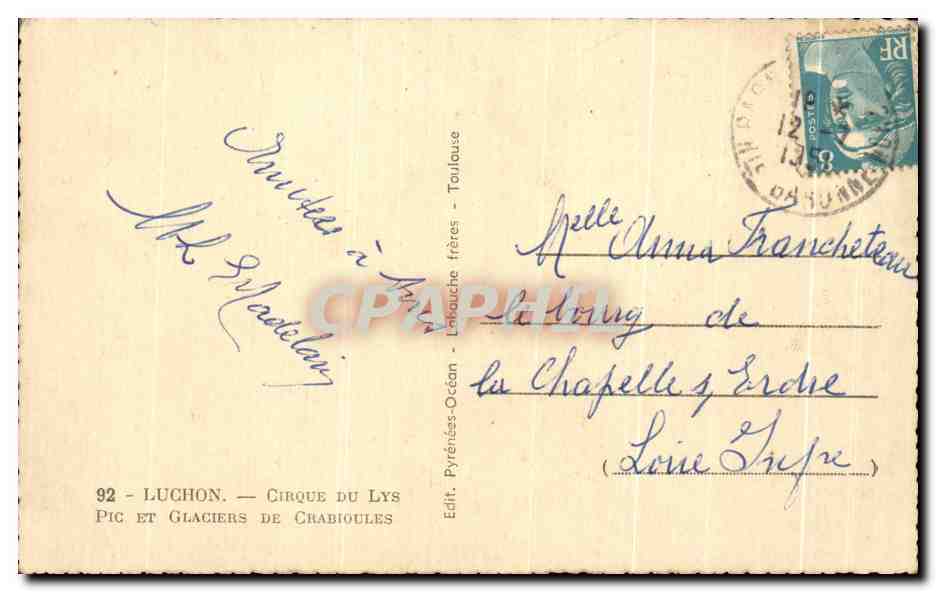 Amitiés à tous
Mth Madelain
92 - LUCHON. — CIRQUE DU LYS
PIC ET GLACIERS DE CRABIOULES
Edit. Pyrénées-Océan - Labouche frères - Toulouse
CPAPHIL
RF
POSTES
8F
12
195
GARONNE
Melle Anna Francheteau
le bourg de
la Chapelle s/ Erdre
(Loire Infre)